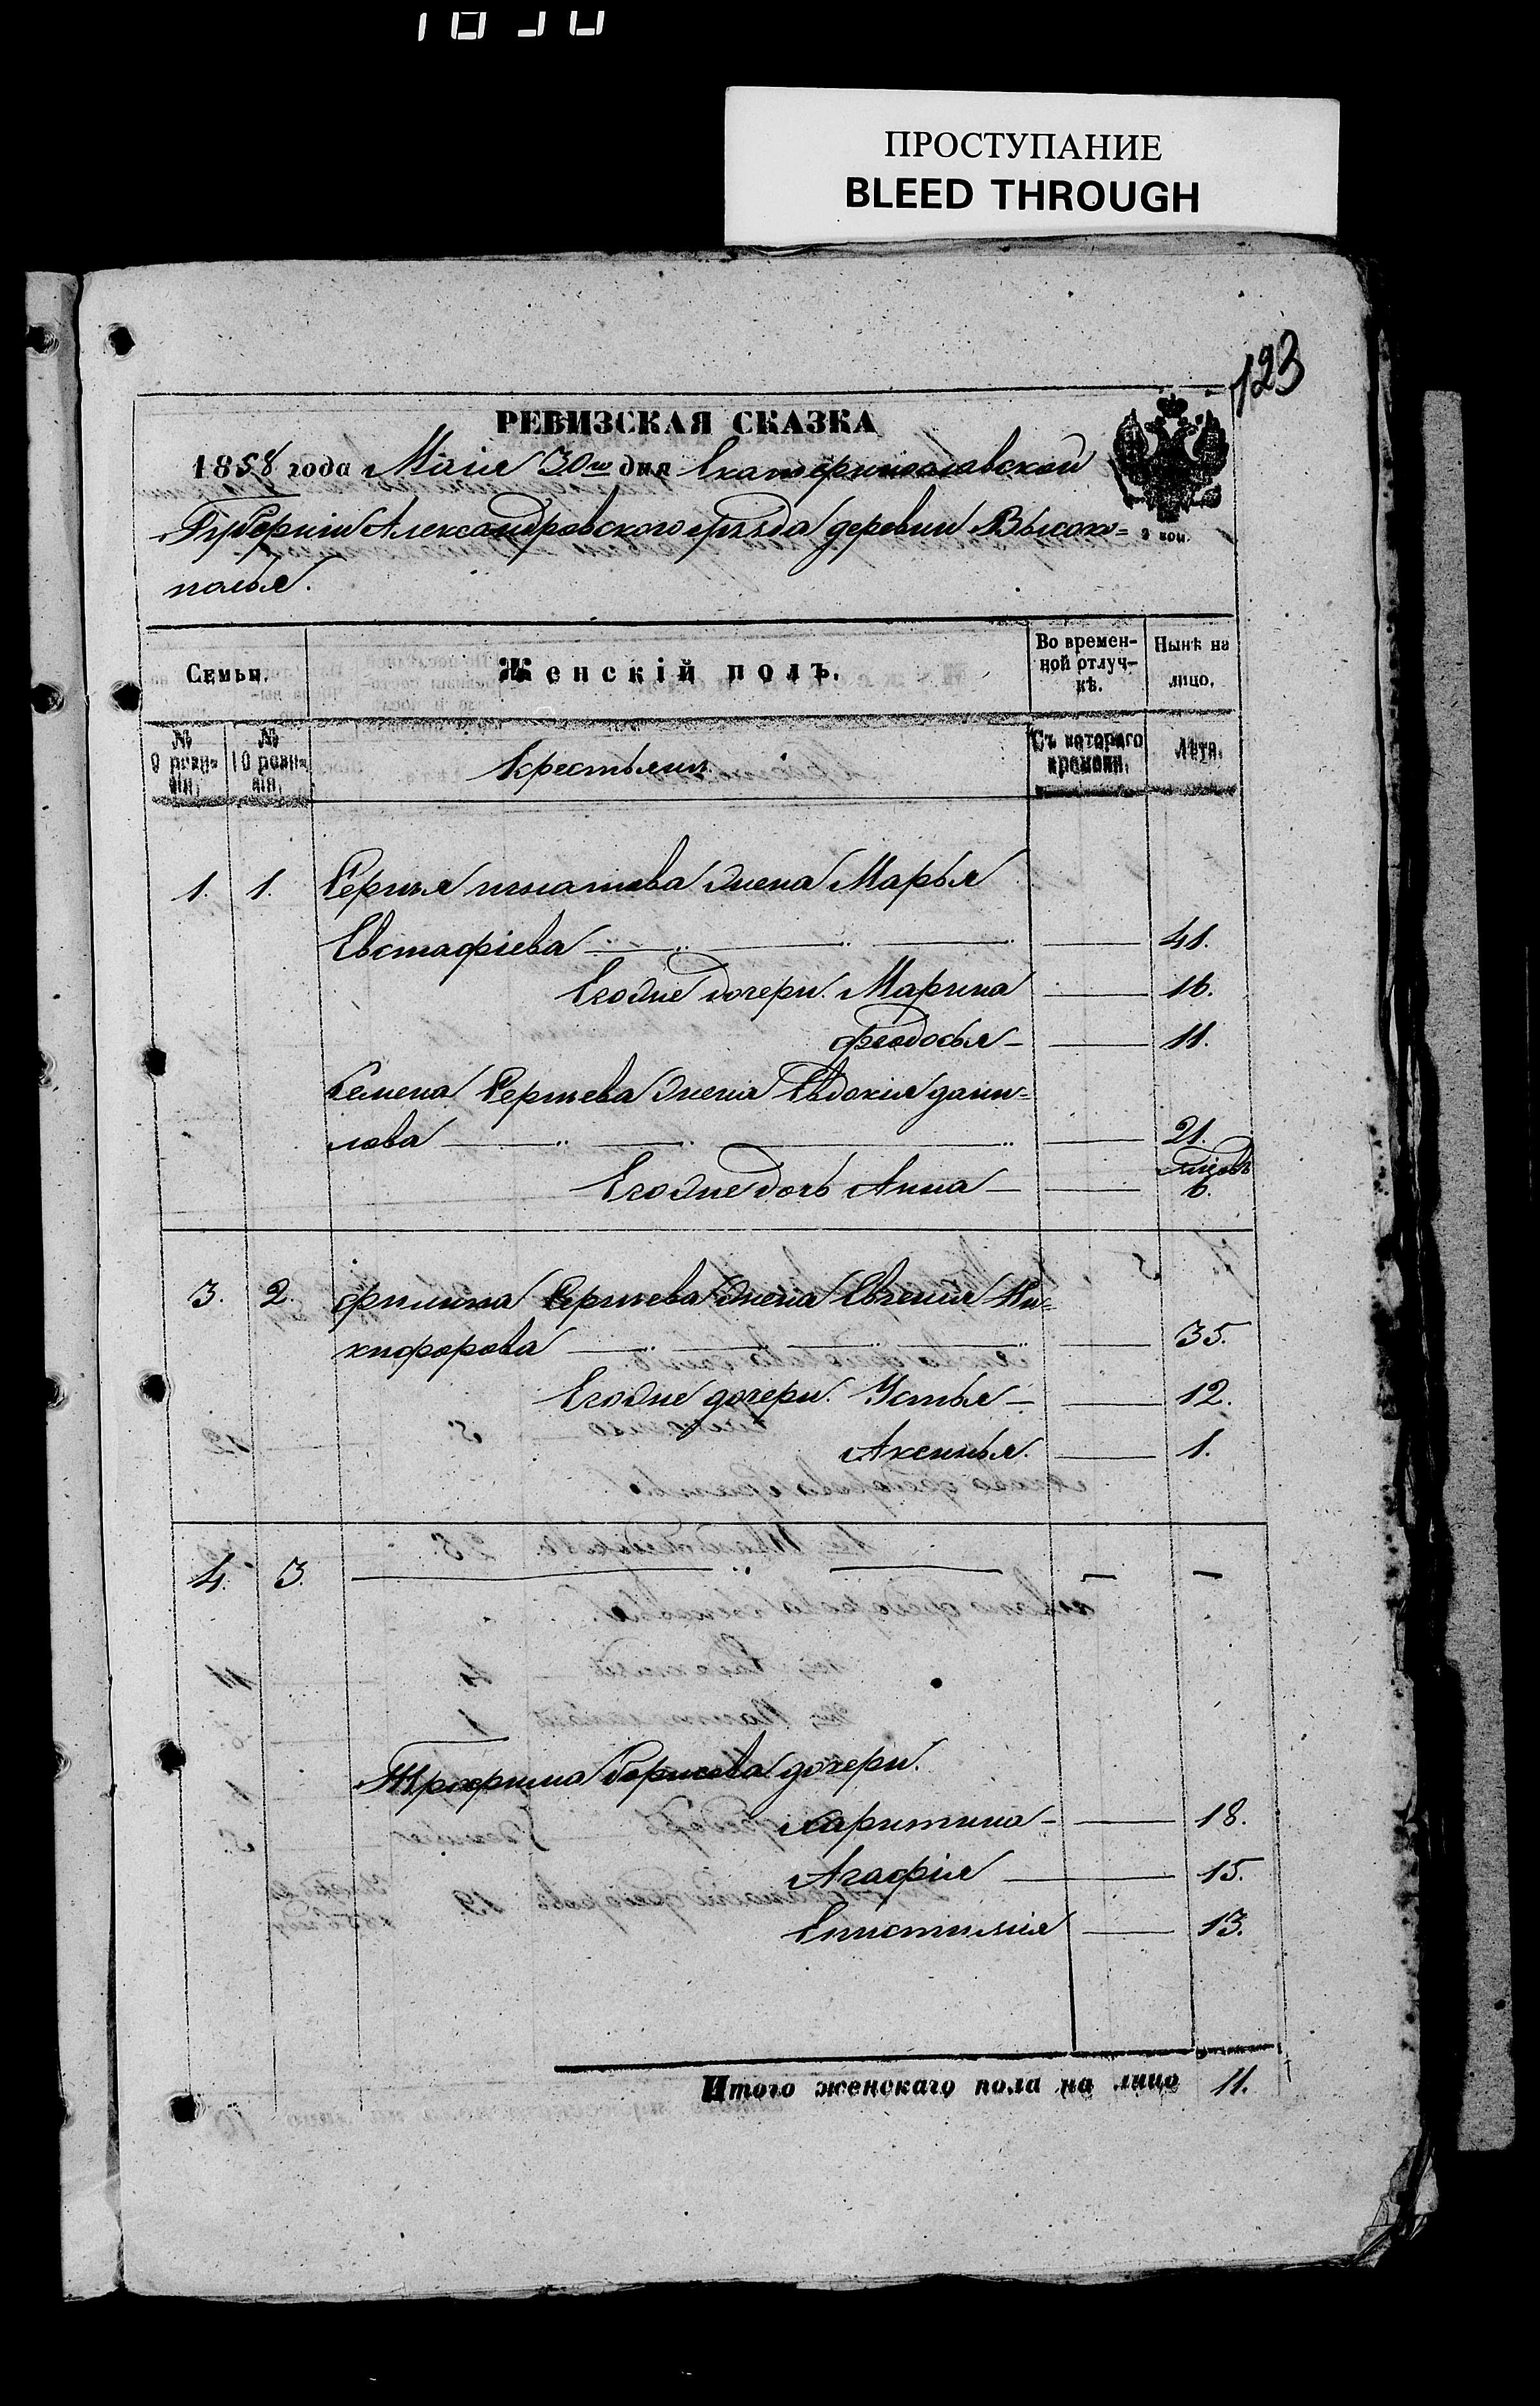 ПРОСТУПАНИЕ
BLEED THROUGH
123
РЕВИЗСКАЯ СКАЗКА
1858 года Маія 30го дня Екатеринославской
Губерніи Александровского уѣзда деревни Высоко=
полья.
Семьи.
Женскій полъ.
Во времен-
ной отлуч-
кѣ.
Нынѣ на
лицо.
№
9 реви-
зіи.
№
10 реви-
зіи.
Крестьяни
Съ котораго
времени.
Лѣта.
1. 1. Сергея Игнатова жена Марья
Евстафіева 41.
Егоже дочери. Марина 16.
Феодосья 11.
Семена Сергеева жена Евдокія Дани=
лова 21.
Егоже дочь Анна 6.
3. 2. Филипа Сергеева жена Евгенія Ни=
кифорова 35.
Егоже дочери. Устья 12.
Аксинья. 1.
4. 3.
Трофима Борисова дочери.
Харитина 18.
Агафія 15.
Епистимія 13.
Итого женскаго пола на лицо 11.